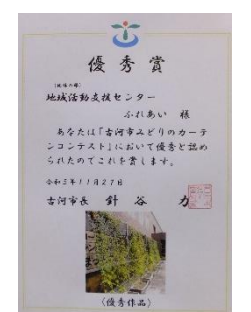 優秀賞
(団体の部)
地域活動支援センター
ふれあい 様
あなたは「古河市みどりのカーテ
ンコンテスト」において優秀と認め
られたのでこれを賞します。
令和三年11月27日
古河市長 針谷 力
(優秀作品)